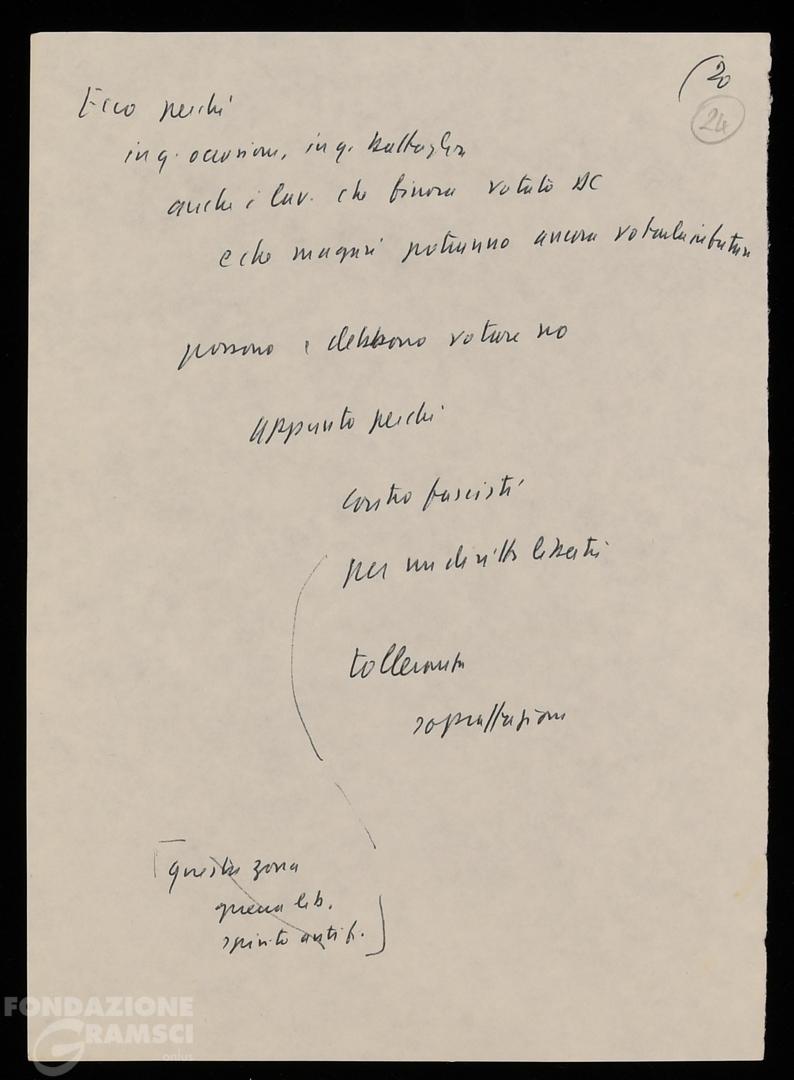 (20
24
Ecco perché
in q. occasione, in q. battaglia
anche i lav. che finora votato DC
e che magari potranno ancora votarla in futuro
possono e debbono votare no
appunto perché
contro fascisti
per un diritto libertà
tolleranza
sopraffazione
[questa zona
guerra lib.
spirito antif.]
FONDAZIONE
GRAMSCI
onlus